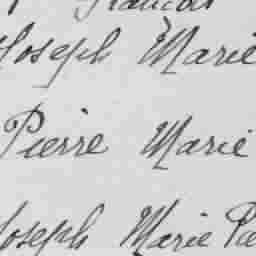 Joseph Marie
Pierre Marie
Joseph Marie